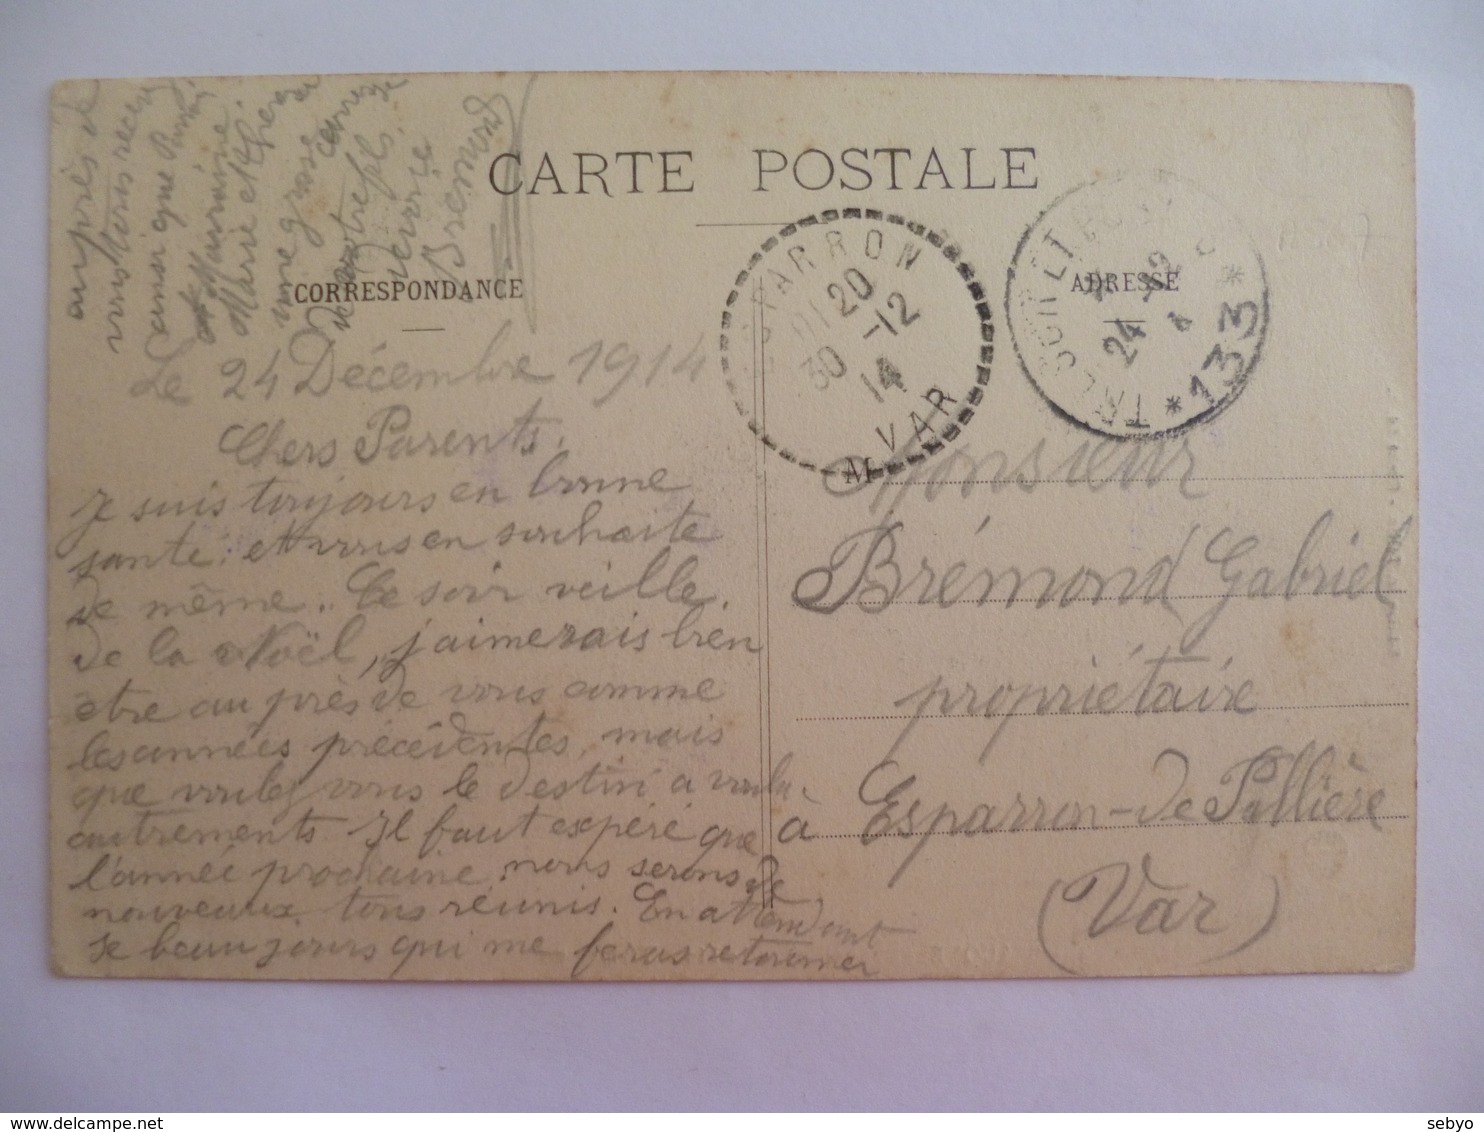 CARTE POSTALE
CORRESPONDANCE
ADRESSE
Le 24 Décembre 1914
Chers Parents,
Je suis toujours en bonne
santé, et vous en souhaite
de même. Ce soir veille
de la Noël, j'aimerais bien
etre auprès de vous comme
les années précédentes, mais
que voulez vous le destin a voulu
autrements. Il faut espéré que
l'année prochaine, nous serons de
nouveaux tous réunis. En attendant
se beau jours qui me feras retourner
auprès de
vous Mers recev
ainsi que
Marraine
Marie et
une grosse caresse de
votre fils.
Bremond
Monsieur
Brémond Gabriel
propriétaire
à Esparron-de-Pallière
(Var)
ESPARRON
20
30 -12
14
VAR
TRESOR ET POSTES
24 -12
* 133 *
sebyo